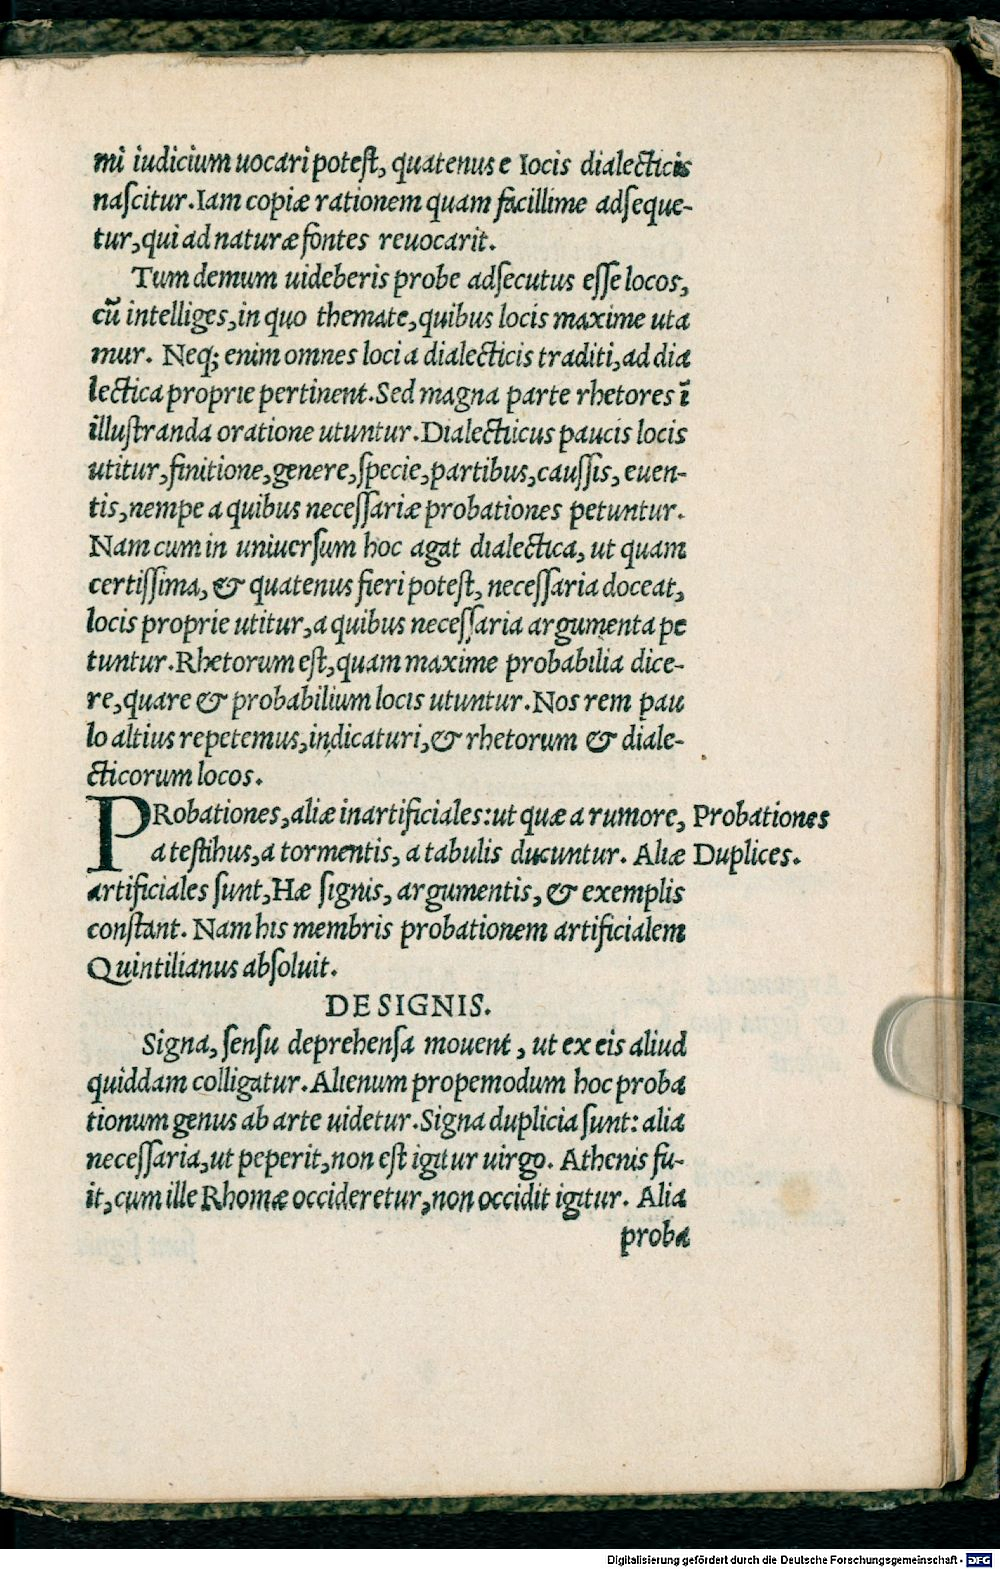 mi iudicium uocari potest, quatenus e locis dialecticis
nascitur. Iam copiæ rationem quam facillime adseque-
tur, qui ad naturæ fontes reuocarit.
Tum demum uideberis probe adsecutus esse locos,
cũ intelliges, in quo themate, quibus locis maxime uta
mur. Neq; enim omnes loci a dialecticis traditi, ad dia
lectica proprie pertinent. Sed magna parte rhetores ĩ
illustranda oratione utuntur. Dialecticus paucis locis
utitur, finitione, genere, specie, partibus, caussis, euen-
tis, nempe a quibus necessariæ probationes petuntur.
Nam cum in uniuersum hoc agat dialectica, ut quam
certissima, & quatenus fieri potest, necessaria doceat,
locis proprie utitur, a quibus necessaria argumenta pe
tuntur. Rhetorum est, quam maxime probabilia dice-
re, quare & probabilium locis utuntur. Nos rem pau
lo altius repetemus, indicaturi, & rhetorum & diale-
cticorum locos.
PRobationes, aliæ inartificiales: ut quæ a rumore, Probationes
a testibus, a tormentis, a tabulis ducuntur. Aliæ Duplices.
artificiales sunt, Hæ signis, argumentis, & exemplis
constant. Nam his membris probationem artificialem
Quintilianus absoluit.
DE SIGNIS.
Signa, sensu deprehensa mouent, ut ex eis aliud
quiddam colligatur. Alienum propemodum hoc proba
tionum genus ab arte uidetur. Signa duplicia sunt: alia
necessaria, ut peperit, non est igitur uirgo. Athenis fu-
it, cum ille Rhomæ occideretur, non occidit igitur. Alia
proba
Digitalisierung gefördert durch die Deutsche Forschungsgemeinschaft - DFG